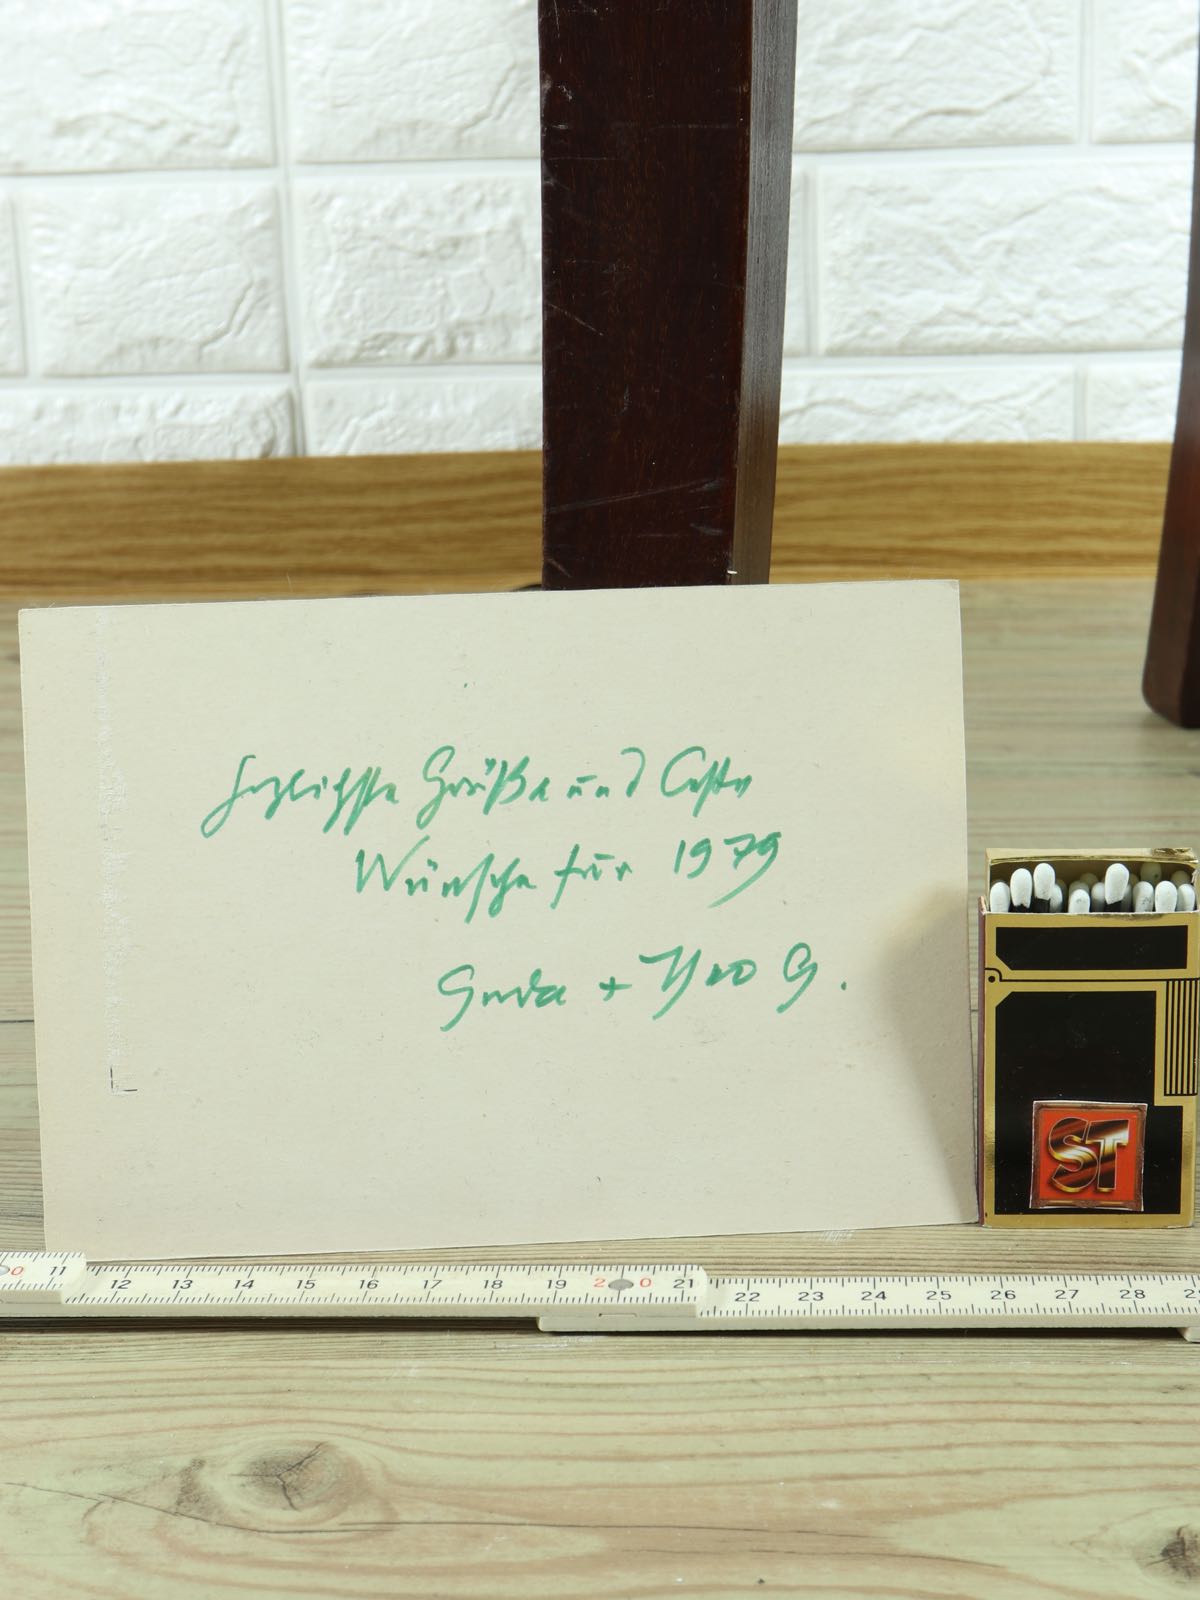 Herzlichste Grüße und beste
Wünsche für 1979
G.
ST
0 11 12 13 14 15 16 17 18 19 2 0 21 22 23 24 25 26 27 28 29